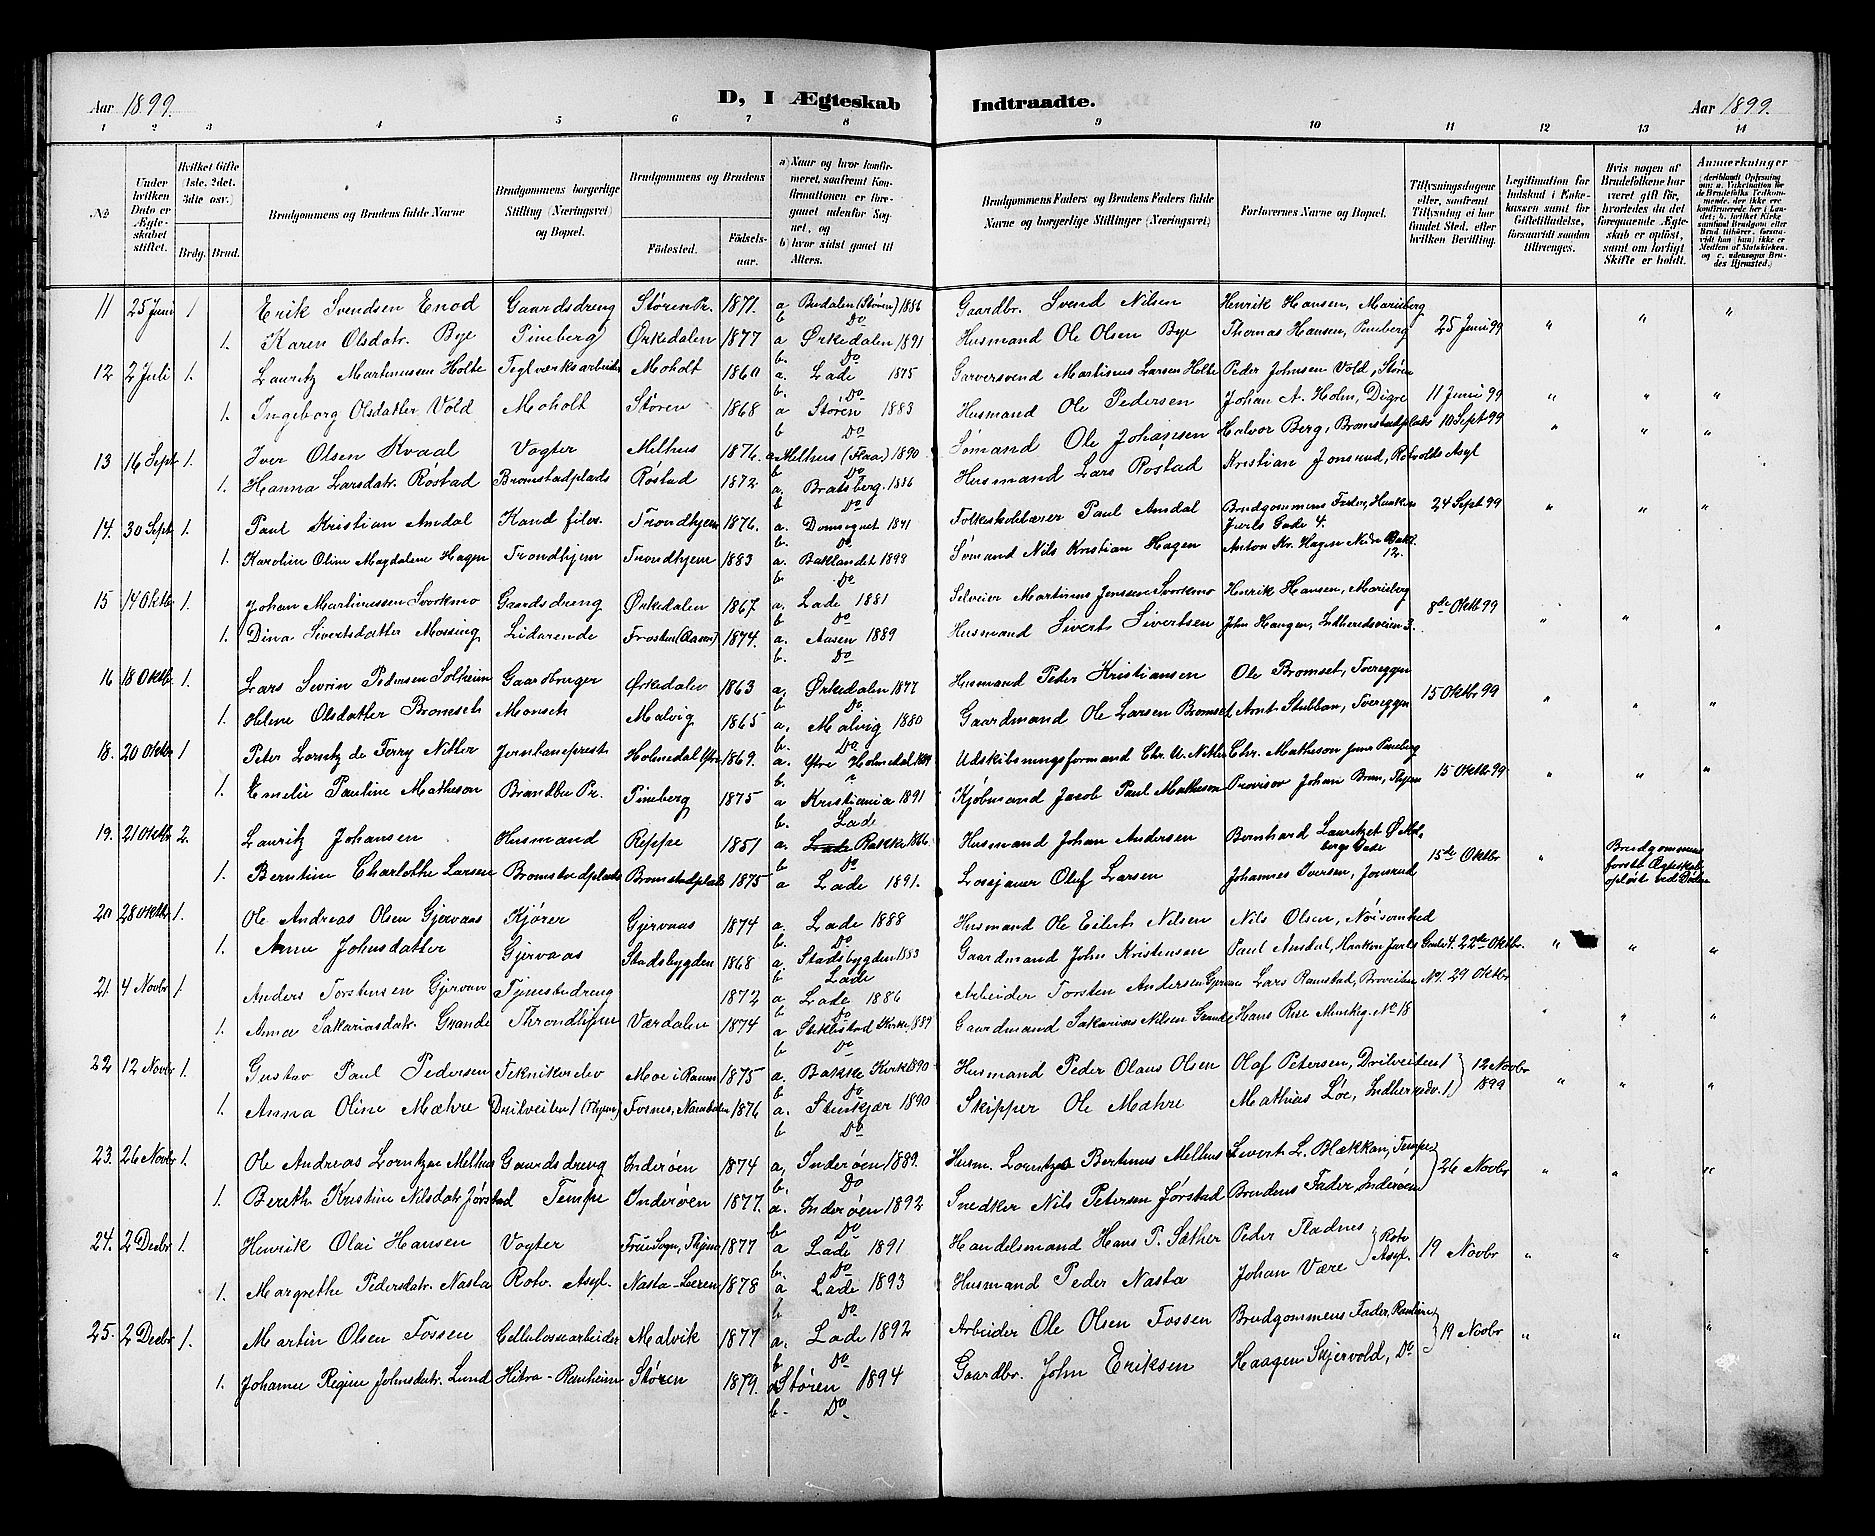 Aar 1899.
D, I Ægteskab Indtraadte.
Aar 1899.
1 2 3 4 5 6 7 8 9 10 11 12 13 14
No
Under hvilken Dato er Ægteskabet stiftet.
Hvilket Gifte (1ste, 2det, 3dte osv.)
Brdg. Brud.
Brudgommens og Brudens fulde Navne
Brudgommens borgerlige Stilling (Næringsvei) og Bopæl.
Brudgommens og Brudens
Födested.
Födsels-aar.
a) Naar og hvor konfirmeret, saafremt Konfirmationen er foregaaet udenfor Sognet, og
b) hvor sidst gaaet til Alters.
Brudgommens Faders og Brudens Faders fulde Navne og borgerlige Stillinger (Næringsvei)
Forlovernes Navne og Bopæl.
Tillysningsdagene eller, saafremt Tillysning ei har fundet Sted, efter hvilken Bevilling.
Legitimation for Indskud i Enkekassen samt for Giftetilladelse, forsaavidt saadan tiltrænges.
Hvis nogen af Brudefolkene har været gift før, hvorledes da det foregaaende Ægteskab er opløst, samt om lovligt Skifte er holdt.
Anmærkninger
11 25 Juni 1 Erik Svendsen Enod Gaardsdreng Støren Pr. 1871. a Budalen (Støren) 1886 Gaardbr. Svend Nilsen Henrik Hansen, Marieberg
b Do
1. Karen Olsdatr. Bye Pineberg Ørkedalen 1877 a Ørkedalen 1891 Husmand Ole Olsen Bye Thomas Hansen, Pineberg 25 Juni 99 " " "
b. Do
12 2 Juli 1. Lauritz Martinusen Holte Teglværksarbeider Moholt 1860 a. Lade 1875 Garversvend Martinus Larsen Holte Peder Johnsen Vold, Støren
b. Do
1. Ingeborg Olsdatter Vold Moholt Støren 1868 a Støren 1883 Husmand Ole Pedersen Johan A. Holm, Digre 11 Juni 99 " " "
b Do
13 16 Sept 1. Iver Olsen Kvaal Vogter Melhus 1876. a Melhus (Flaa) 1890 Sømand Ole Johansen Halvor Berg, Bromstadplads 10 Sept 99 " " "
b Do
1. Hanna Larsdatr. Røstad Bromstadplads Røstad 1872 a. Bratsberg. 1886 Husmand Lars Røstad Kristian Jonsrud, Rotvolds Asyl
b Do
14. 30 Sept 1. Paul Kristian Amdal Kand filos. Trondhjem 1876. a. Domsognet 1891 Folkeskolelærer Paul Amdal Brudgommens Fader, Haakon Jarls Gade 4. 24 Sept 99 " " "
b. Do
1. Karoline Oline Magdalene Hagen Trondhjem Trondhjem 1883 a. Baklandet 1898 Sømand Nils Kristian Hagen Anton Kr. Hagen Nedre Bakl. 12.
b. Do
15 14 Oktb 1. Johan Martinussen Svorkmo Gaardsdreng Ørkedalen 1867. a. Lade 1881 Selveier Martinus Jenssen Svorkmo Henrik Hansen, Marieberg 8de Oktb 99
b Do
1. Dina Sivertsdatter Mossing Lidarende Frosten (Aasen) 1874. a. Aasen 1889 Husmand Sivert Sivertsen John Haugen, Indherredsveien 3. " "
b. Do
16 18 Oktb. 1. Lars Sevrin Pedersen Solheim Gaardbruger Ørkedalen 1863 a. Ørkedalen 1877 Husmand Peder Kristiansen Ole Bromset, Tvereggen
b Do
1. Helene Olsdatter Bromseth Monseth Malvig 1865 a. Malvig 1880 Gaardmand Ole Larsen Bromset Arnt Stubban, Tvereggen 15 Oktbr 99 " " "
b. Do
18. 20 Oktbr 1 Peter Lorntz de Ferry Nitter Jernbaneprest Holmedal Ytre 1869. a. Ytre Holmedal Udskibningsformand Chr. U. Nitter Chr. Matheson Junr Pineberg
b
1. Emelie Pauline Matheson Brandbu Pr. Pineberg 1875 a Kristiania 1891 Kjøbmand Jacob Paul Matheson Provisor Johan Brun, Thjem 15 Oktbr 99 " " "
b. Lade
19. 21 Oktbr 2. Lauritz Johansen Husmand Reppe 1851 a. Lade Bakke 1866 Husmand Johan Andersen Bernhard Lauritzet Øvldbergs Gade
b Do
1. Berntine Charlothe Larsen Bromstadplads Bromstadplads 1875 a Lade 1891. Lossjauer Oluf Larsen Johannes Iversen, Jonsrud 15de Oktbr " Brudgommens første Ægteskab opløst ved Døden
20 28 Oktbr 1. Ole Andreas Olsen Gjervaas Kjører Gjervaas 1874 a. Lade 1888 Husmand Ole Eilert Nilsen Nils Olsen, Nøisomhed
b. Do
1. Anne Johnsdatter Gjervaas Stadsbygden 1868 a. Stadsbygden 1883 Gaardmand John Kristensen Paul Amdal, Haakon Jarls Gade 4. 22de Oktbr. " " "
b Lade
21. 4 Novbr 1. Anders Torstensen Gjervan Tjenestedreng 1872 a. Lade 1886 Arbeider Torsten Andersen Gjervan Lars Ramstad, Broveiten No 1. 29 Oktbr
b Do
1. Anna Sakariasdatr. Grande Throndhjem Værdalen 1874 a Stiklestad Kirke 1889 Gaardmand Sakarias Nilsen Grande Hans Rise Munkeg. No 18 " " "
b Do
22 12 Novbr 1. Gustav Paul Pedersen Teknikerelev Moe i Ranen 1875 a. Bakke Kirke 1890 Husmand Peder Olaus Olsen Olaf Petersen, Dvilveiten 1 12 Novbr 1899
b Do
1. Anna Oline Mæhre Dvilveiten 1 (Thjem) Fosnes, Namdalen 1876 a. Stenkjær 1890 Skipper Ole Mæhre Mathias Løe, Indherredv. 1 " " "
b Do
23. 26 Novbr 1. Ole Andreas Lorntzen Melhus Gaardsdreng Inderøen 1874 a. Inderøen 1889. Husm. Lorntz Bertinus Melhus Sivert L. Blækkan, Tempe 26 Novbr " " "
b. Do
1. Bereth Kristine Nilsdatr Jørstad Tempe Inderøen 1877. a. Inderøen 1892 Snedker Nils Petersen Jørstad Brudens Fader, Inderøen
b Do
24. 2 Decbr 1. Henrik Olai Hansen Vogter Frue Sogn, Thjem 1877 a Lade 1891 Handelsmand Hans P. Sæther Peder Fladnes Rotv Asyl. 19 Novbr " " "
b. Do
1. Margrethe Pedersdatr. Nasta Rotv. Asyl. Nasta-Leren 1878 a Lade 1893 Husmand Peder Nasta Johan Være
b Do
25. 2 Decbr 1. Martin Olsen Fossen Cellulosearbeider Malvik 1877 a. Lade 1892 Arbeider Ole Olsen Fossen Brudgommens Fader, Ranheim 19 Novbr " " "
b Do
1. Johanne Regine Johnsdatr. Lund Hitra-Ranheim Støren 1879. a Støren 1894 Gaardbr. John Eriksen Haagen Skjervold, Do
b. Do